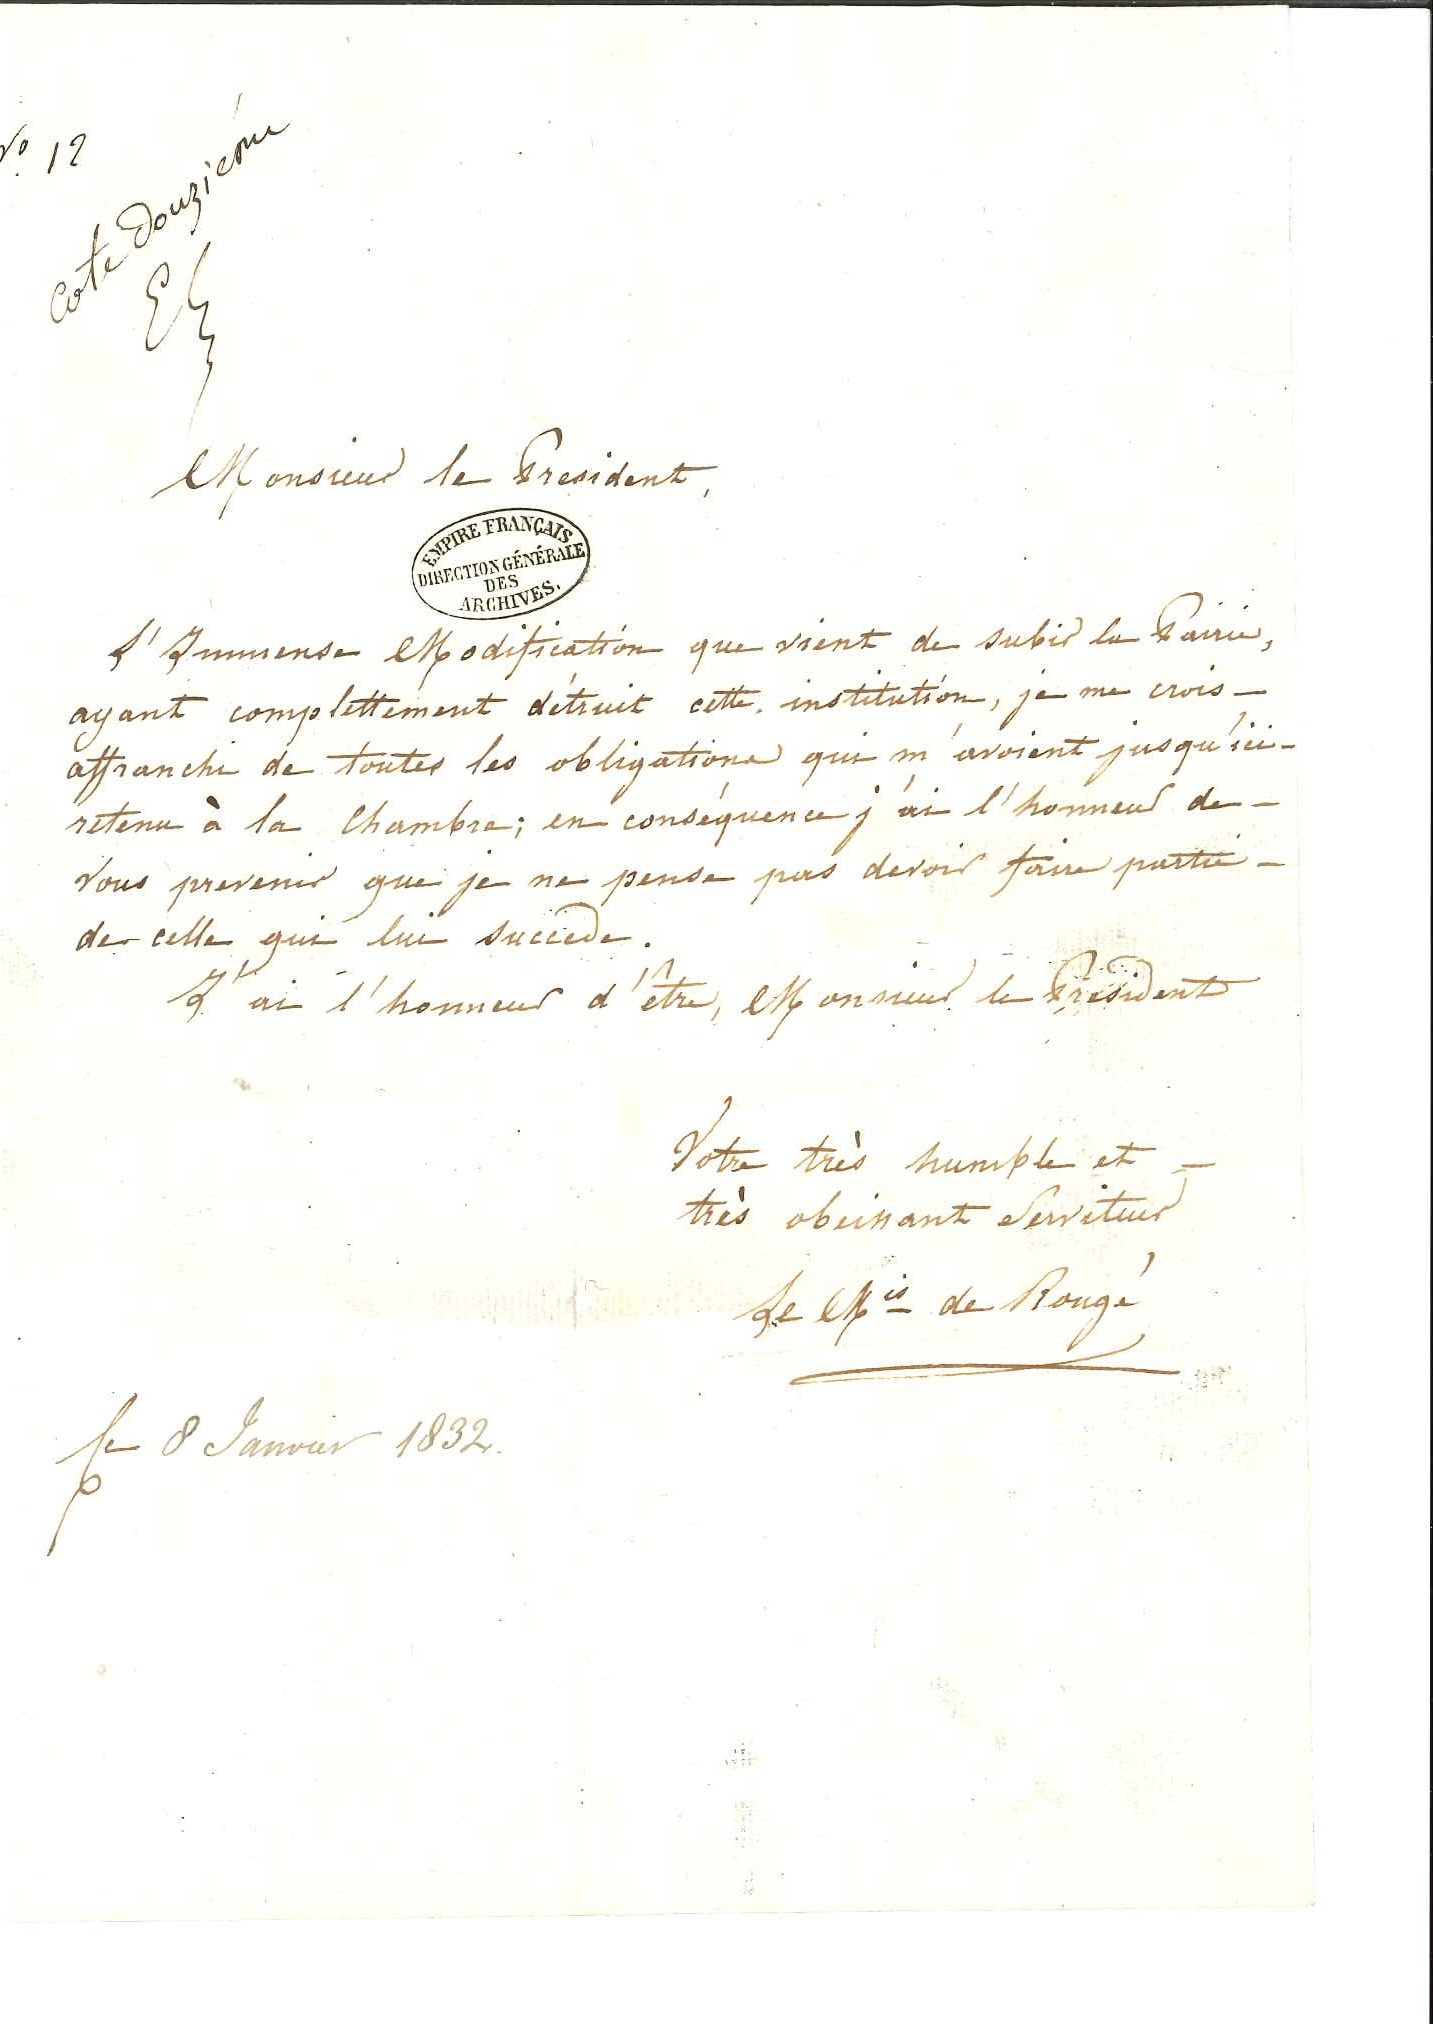 No. 12
Cote Douzième
Monsieur le President,
EMPIRE FRANÇAIS
DIRECTION GÉNÉRALE
DES
ARCHIVES.
L'Immense Modification que vient de subir la Pairie,
ayant complettement détruit cette institution, je me crois
affranchi de toutes les obligations qui m'avoient jusqu'ici
retenu à la Chambre; en conséquence j'ai l'honneur de
vous prevenir que je ne pense pas devoir faire partie
de celle qui lui succede.
J'ai l'honneur d'être, Monsieur le President
Votre très humble et
très obeissant Serviteur
Le Mis de Rougé
Le 8 Janvier 1832.